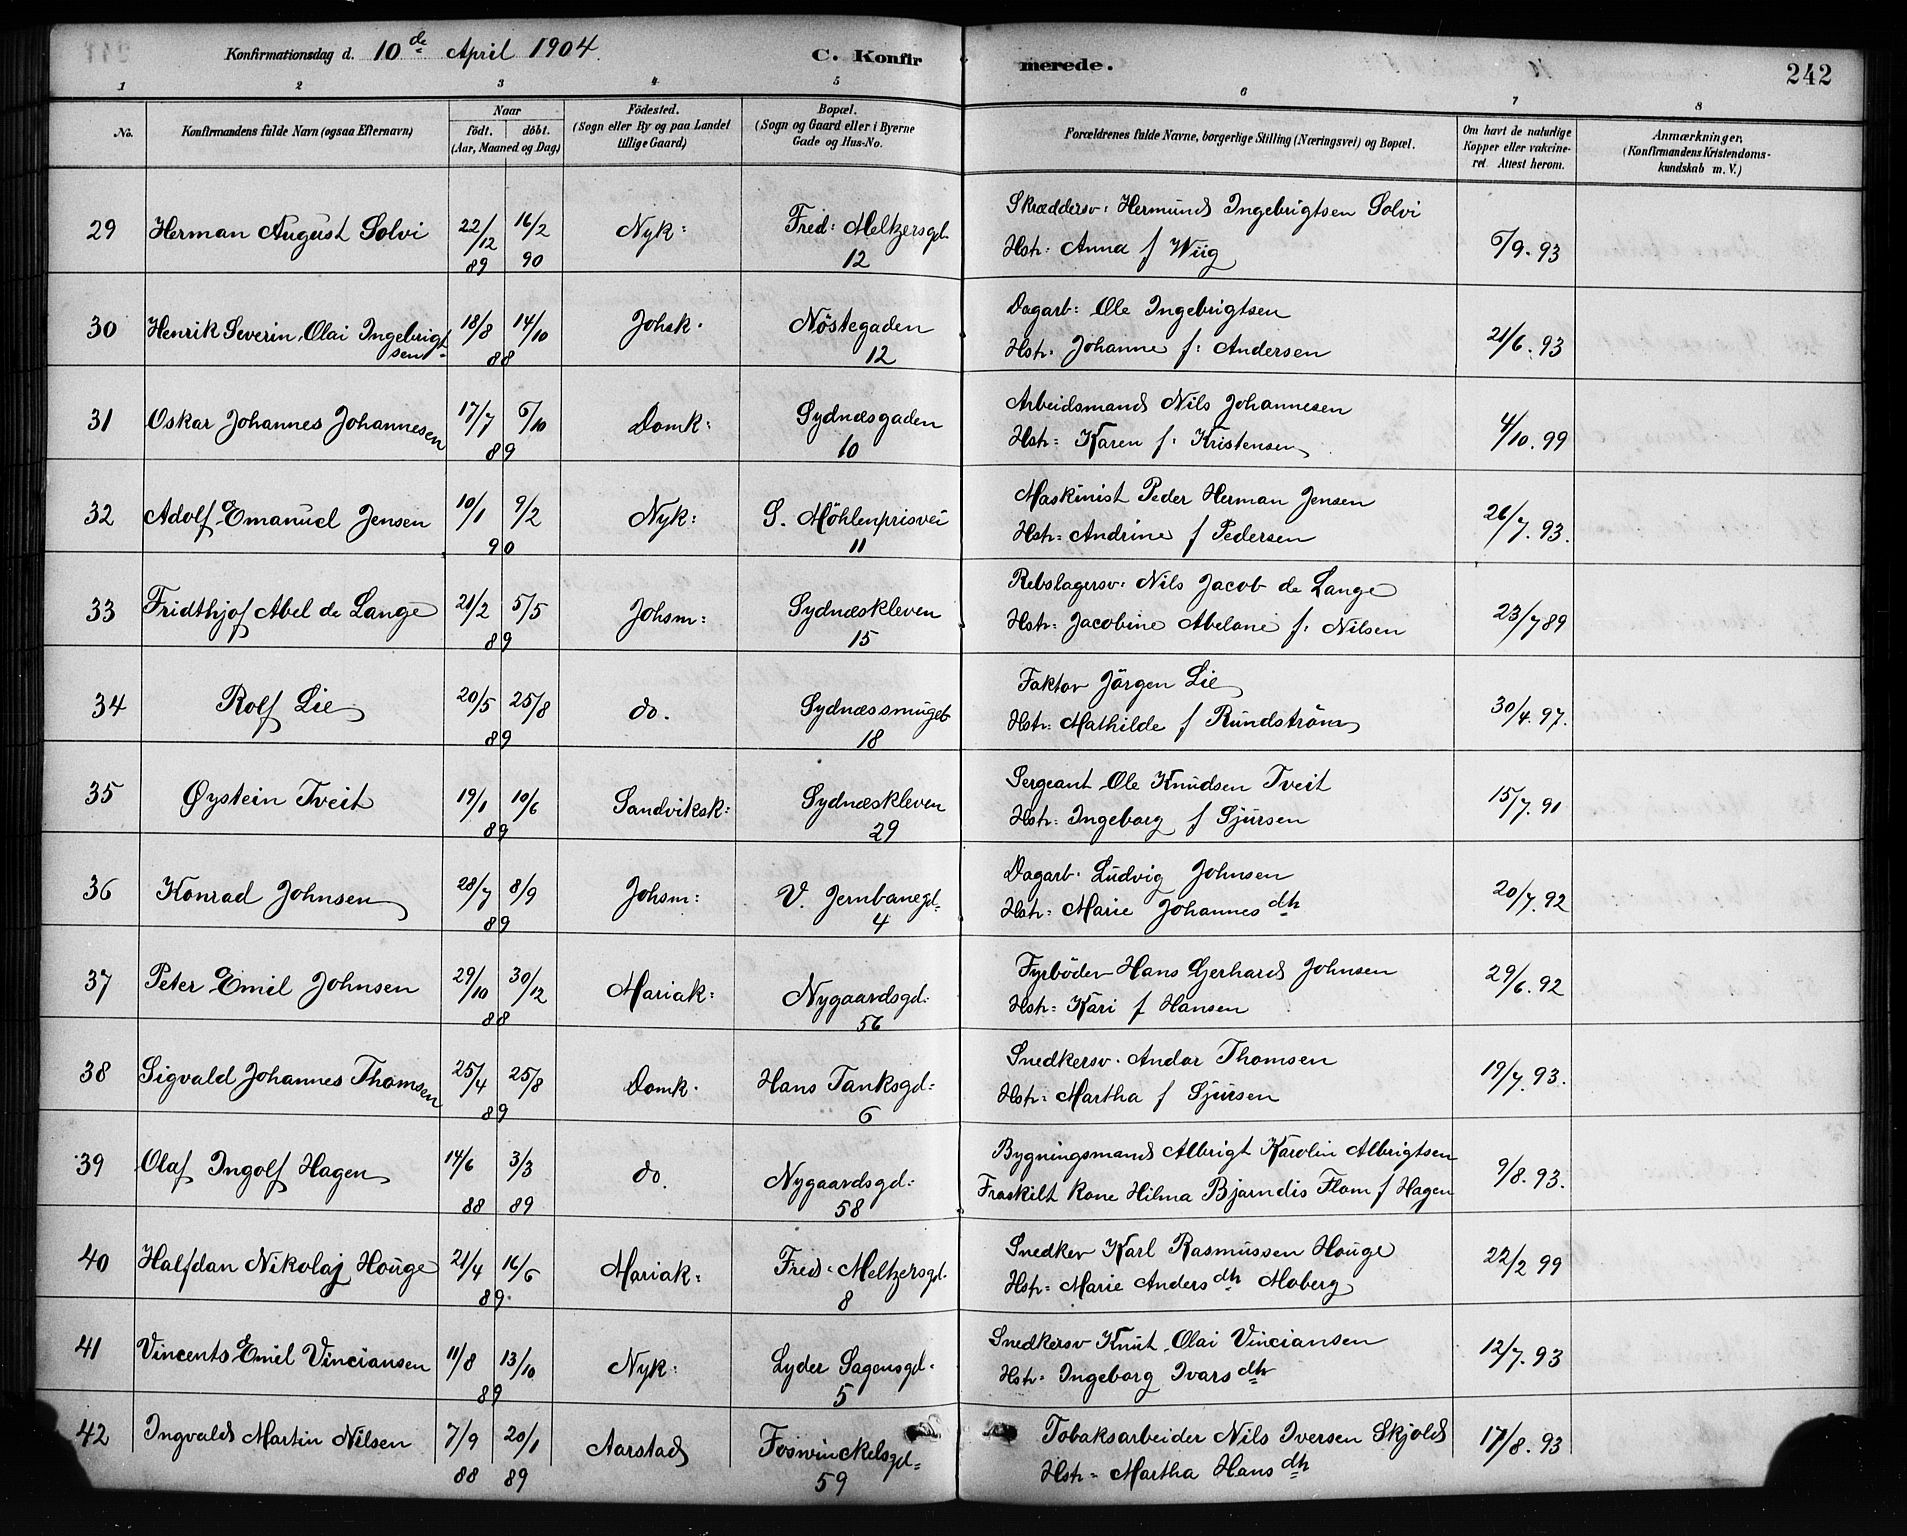 Konfirmationsdag d. 10de April 1904. C. Konfirmerede. 242
1 2 3 4 5 6 7 8
No. Konfirmandens fulde Navn (ogsaa Efternavn) Naar födt. döbt. (Aar, Maaned og Dag) Födested. (Sogn eller By og paa Landet tillige Gaard) Bopæl. (Sogn og Gaard eller i Byerne Gade og Hus-No. Forældrenes fulde Navne, borgerlige Stilling (Næringsvei) og Bopæl. Om havt de naturlige Kopper eller vakcineret Attest herom. Anmærkninger, (Konfirmandens Kristendomskundskab m. V.)
29 Herman August Solvi 22/12 89 16/2 90 Nyk: Fred: Meltzersgd. 12 Skræddersv: Hermund Ingebrigtsen Solvi
Hstr: Anna f Wiig 6/9. 93
30 Henrik Severin Olai Ingebrigtsen 18/8 14/10 88 Johsk. Nöstegaden 12 Dagarb: Ole Ingebrigtsen
Hstr: Johanne f: Andersen 21/6. 93
31 Oskar Johannes Johannesen 17/7 6/10 89 Domk: Sydnæsgaden 10 Arbeidsmand Nils Johannesen
Hstr: Karen f: Kristensen 4/10. 99
32 Adolf Emanuel Jensen 10/1 9/2 90 Nyk: S. Möhlenprisvei 11 Maskinist Peder Herman Jensen
Hstr: Andrine f Pedersen 26/7. 93.
33 Fridthjof Abel de Lange 21/2 5/5 89 Johsm: Sydnæskleven 15 Rebslagersv: Nils Jacob de Lange
Hstr: Jacobine Abelone f: Nilsen 23/7 89
34 Rolf Lie 20/5 25/8 89 do. Sydnæssmuget 18 Faktor Jörgen Lie
Hstr: Mathilde f Rundström 30/4. 97.
35 Øystein Tveit 19/1 10/6 89 Sandviksk: Sydnæskleven 29 Sergeant Ole Knudsen Tveit
Hstr: Ingeborg f Sjursen 15/7. 91
36 Konrad Johnsen 28/7 8/9 89 Johsm: V. Jernbanegd. 4 Dagarb. Ludvig Johnsen
Hstr: Marie Johannesdtr 20/7. 92
37 Peter Emil Johnsen 29/10 30/12 88 Mariak: Nygaardsgd. 56 Fyrböder Hans Gerhard Johnsen
Hstr: Kari f Hansen 29/6. 92
38 Sigvald Johannes Thomsen 25/4 25/8 89 Domk. Hans Tanksgd: 6 Snedkersv. Andor Thomsen
Hstr: Martha f Sjursen 19/7. 93.
39 Olaf Ingolf Hagen 14/6 88 3/3 89 do. Nygaardsgd: 58 Bygningsmand Albrigt Karolin Albrigtsen
Fraskilt Kone Hilma Bjarndis Flom f Hagen 9/8. 93.
40 Halfdan Nikolaj Houge 21/4 16/6 89. Mariak: Fred. Meltzersgd. 8 Snedker Karl Rasmussen Houge
Hstr: Marie Andersdtr Moberg 22/2 99
41 Vincents Emil Vinciansen 11/8 13/10 89 Nyk: Lyder Sagensgd. 5 Snedkersv Knut Olai Vinciansen
Hstr. Ingeborg Ivarsdtr 12/7. 93
42 Ingvald Martin Nilsen 7/9 88 20/1 89 Aarstad Foswinckelsgd: 59 Tobaksarbeider Nils Iversen Skjold
Hstr. Martha Hansdtr 17/8. 93